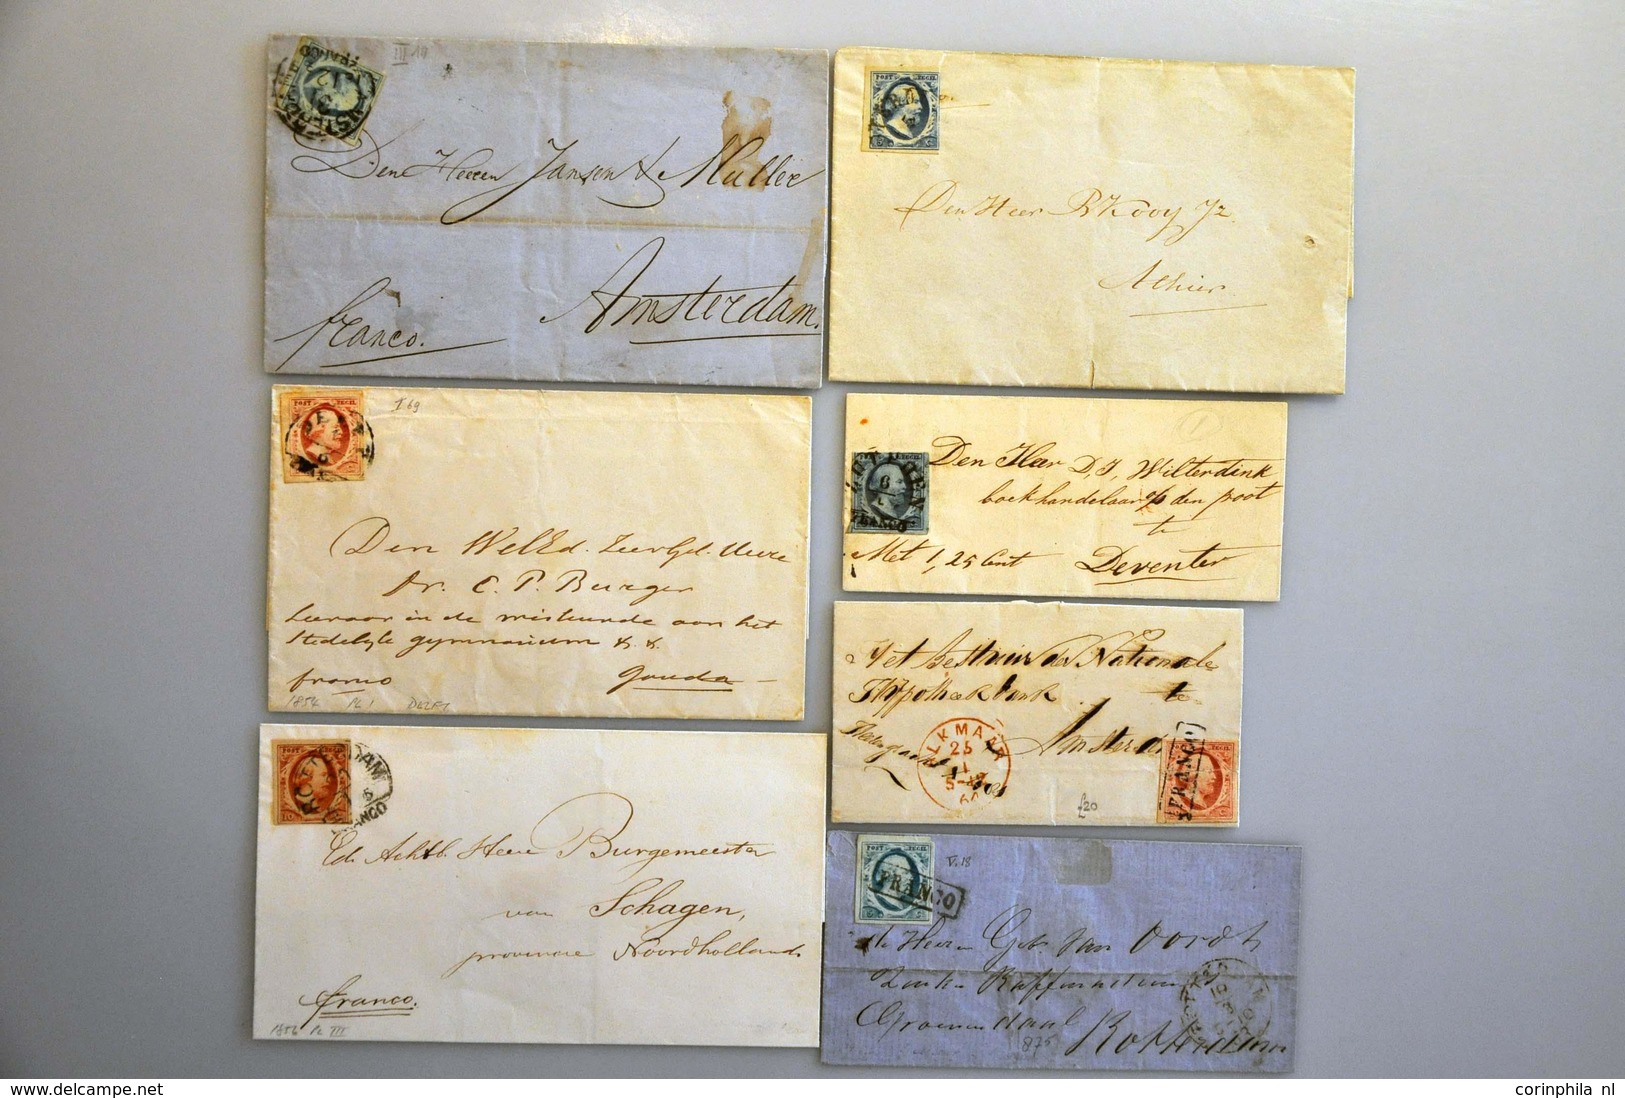 III 19
FRANCO
Den Heeren Jansen & Muller
Amsterdam.
franco.
POST ZEGEL
Den Heer R Kooy Jz.
POST ZEGEL
I 69
Den
Dr. C. P. Burger
Leeraar in de wiskunde aan het
Stedelijk gymnasium & &
franco Gouda
1854 PL I DELFT
POST ZEGEL
FRANCO
Den Heer D, J, Wilterdink
boekhandelaar op den poot
te
Met 1,25 Cent Deventer
Het bestuur der Nationale
Hypotheek bank te
Amsterdam
ALKMAAR
25
1
FRANCO
£20
POST ZEGEL
ROTTERDAM
FRANCO
10 C
Ed. Achtb. Heer Burgemeester
van Schagen,
provincie Noordholland
franco.
1856 PL III
POST ZEGEL
FRANCO
V. 18
de Heeren Gebr. van Oordt
Groenendaal
Rotterdam
875
corinphila nl